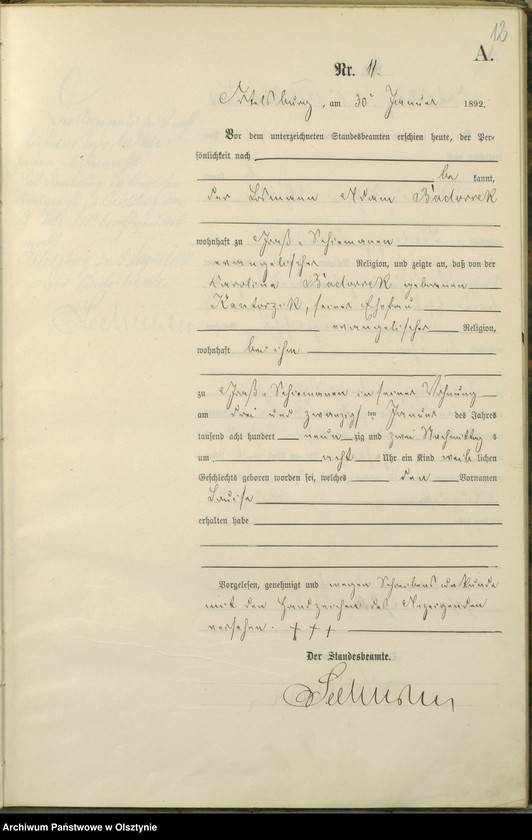 12
A.
Nr. 11.
Ortelsburg, am 30ten Januar 1892.
Vor dem unterzeichneten Standesbeamten erschien heute, der Per-
sönlichkeit nach
be kannt,
der Losmann Adam
wohnhaft zu Groß-Schiemanen
evangelischer Religion, und zeigte an, daß von der
Karoline geborenen
Kantorzik, seiner Ehefrau
evangelischer Religion,
wohnhaft bei ihm
zu Groß-Schiemanen in seiner Wohnung
am drei und zwanzigsten Januar des Jahres
tausend acht hundert neun zig und zwei Nachmittag s
um acht Uhr ein Kind weib lichen
Geschlechts geboren worden sei, welches den Vornamen
Louise
erhalten habe
Vorgelesen, genehmigt und wegen Schreibensunkunde
mit den Handzeichen des Anzeigenden
versehen. + + +
Der Standesbeamte.
Archiwum Państwowe w Olsztynie